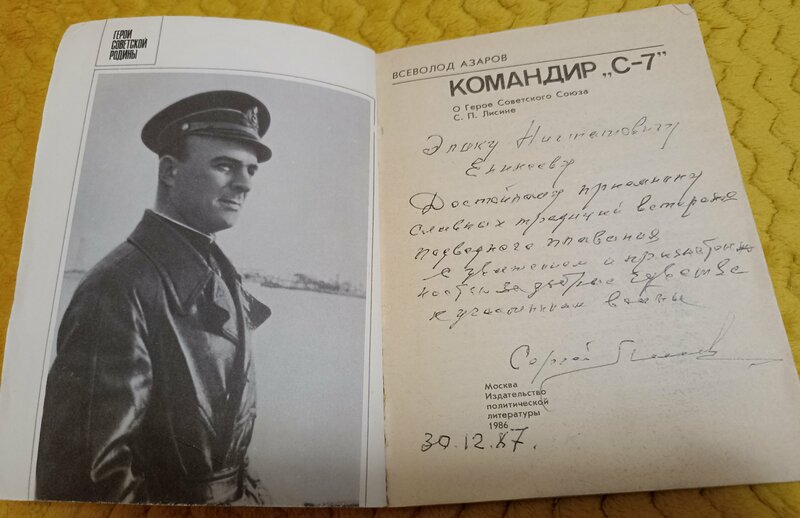 ГЕРОИ
СОВЕТСКОЙ
РОДИНЫ
ВСЕВОЛОД АЗАРОВ
КОМАНДИР „С-7"
О Герое Советского Союза
С. П. Лисине
Эрику Нигматовичу
Еникееву
Достойному приемнику
славных традиций ветерана
подводного плавания
с уважением и признатель-
ностью за добрые чувства
к участникам войны
Сергей
Москва
Издательство
политической
литературы
1986
30.12.87.